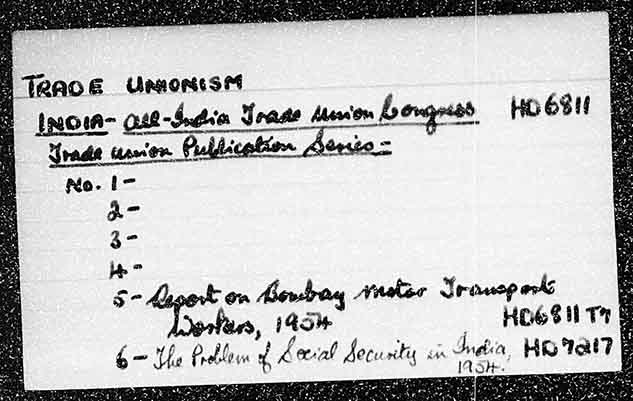 TRADE UNIONISM
INDIA - All-India Trade Union Congress HD6811
Trade Union Publication Series -
No. 1 -
2 -
3 -
4 -
5 - Report on Bombay Motor Transport
Workers, 1954 HD6811 T7
6 - The Problem of Social Security in India, HD7217
1954.